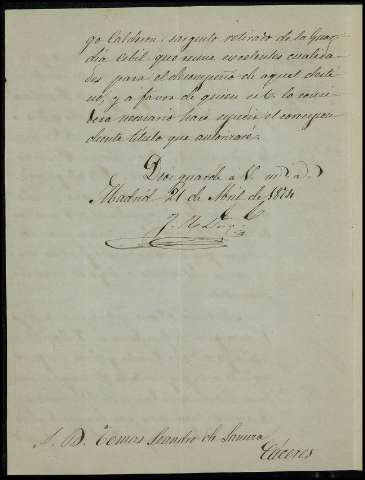 go Calderon, sargento retirado de la Guar
dia Cibil que reune excelentes cualida
des para el desempeño de aquel desti
no, y a favor de quien si V. lo consi
dera necesario haré expedir el correspon
diente título que autorizaré.
Dios guarde a V. m.s a.s
Madrid 21 de Abril de 1874
S. D. Tomas Leandro de
Cáceres